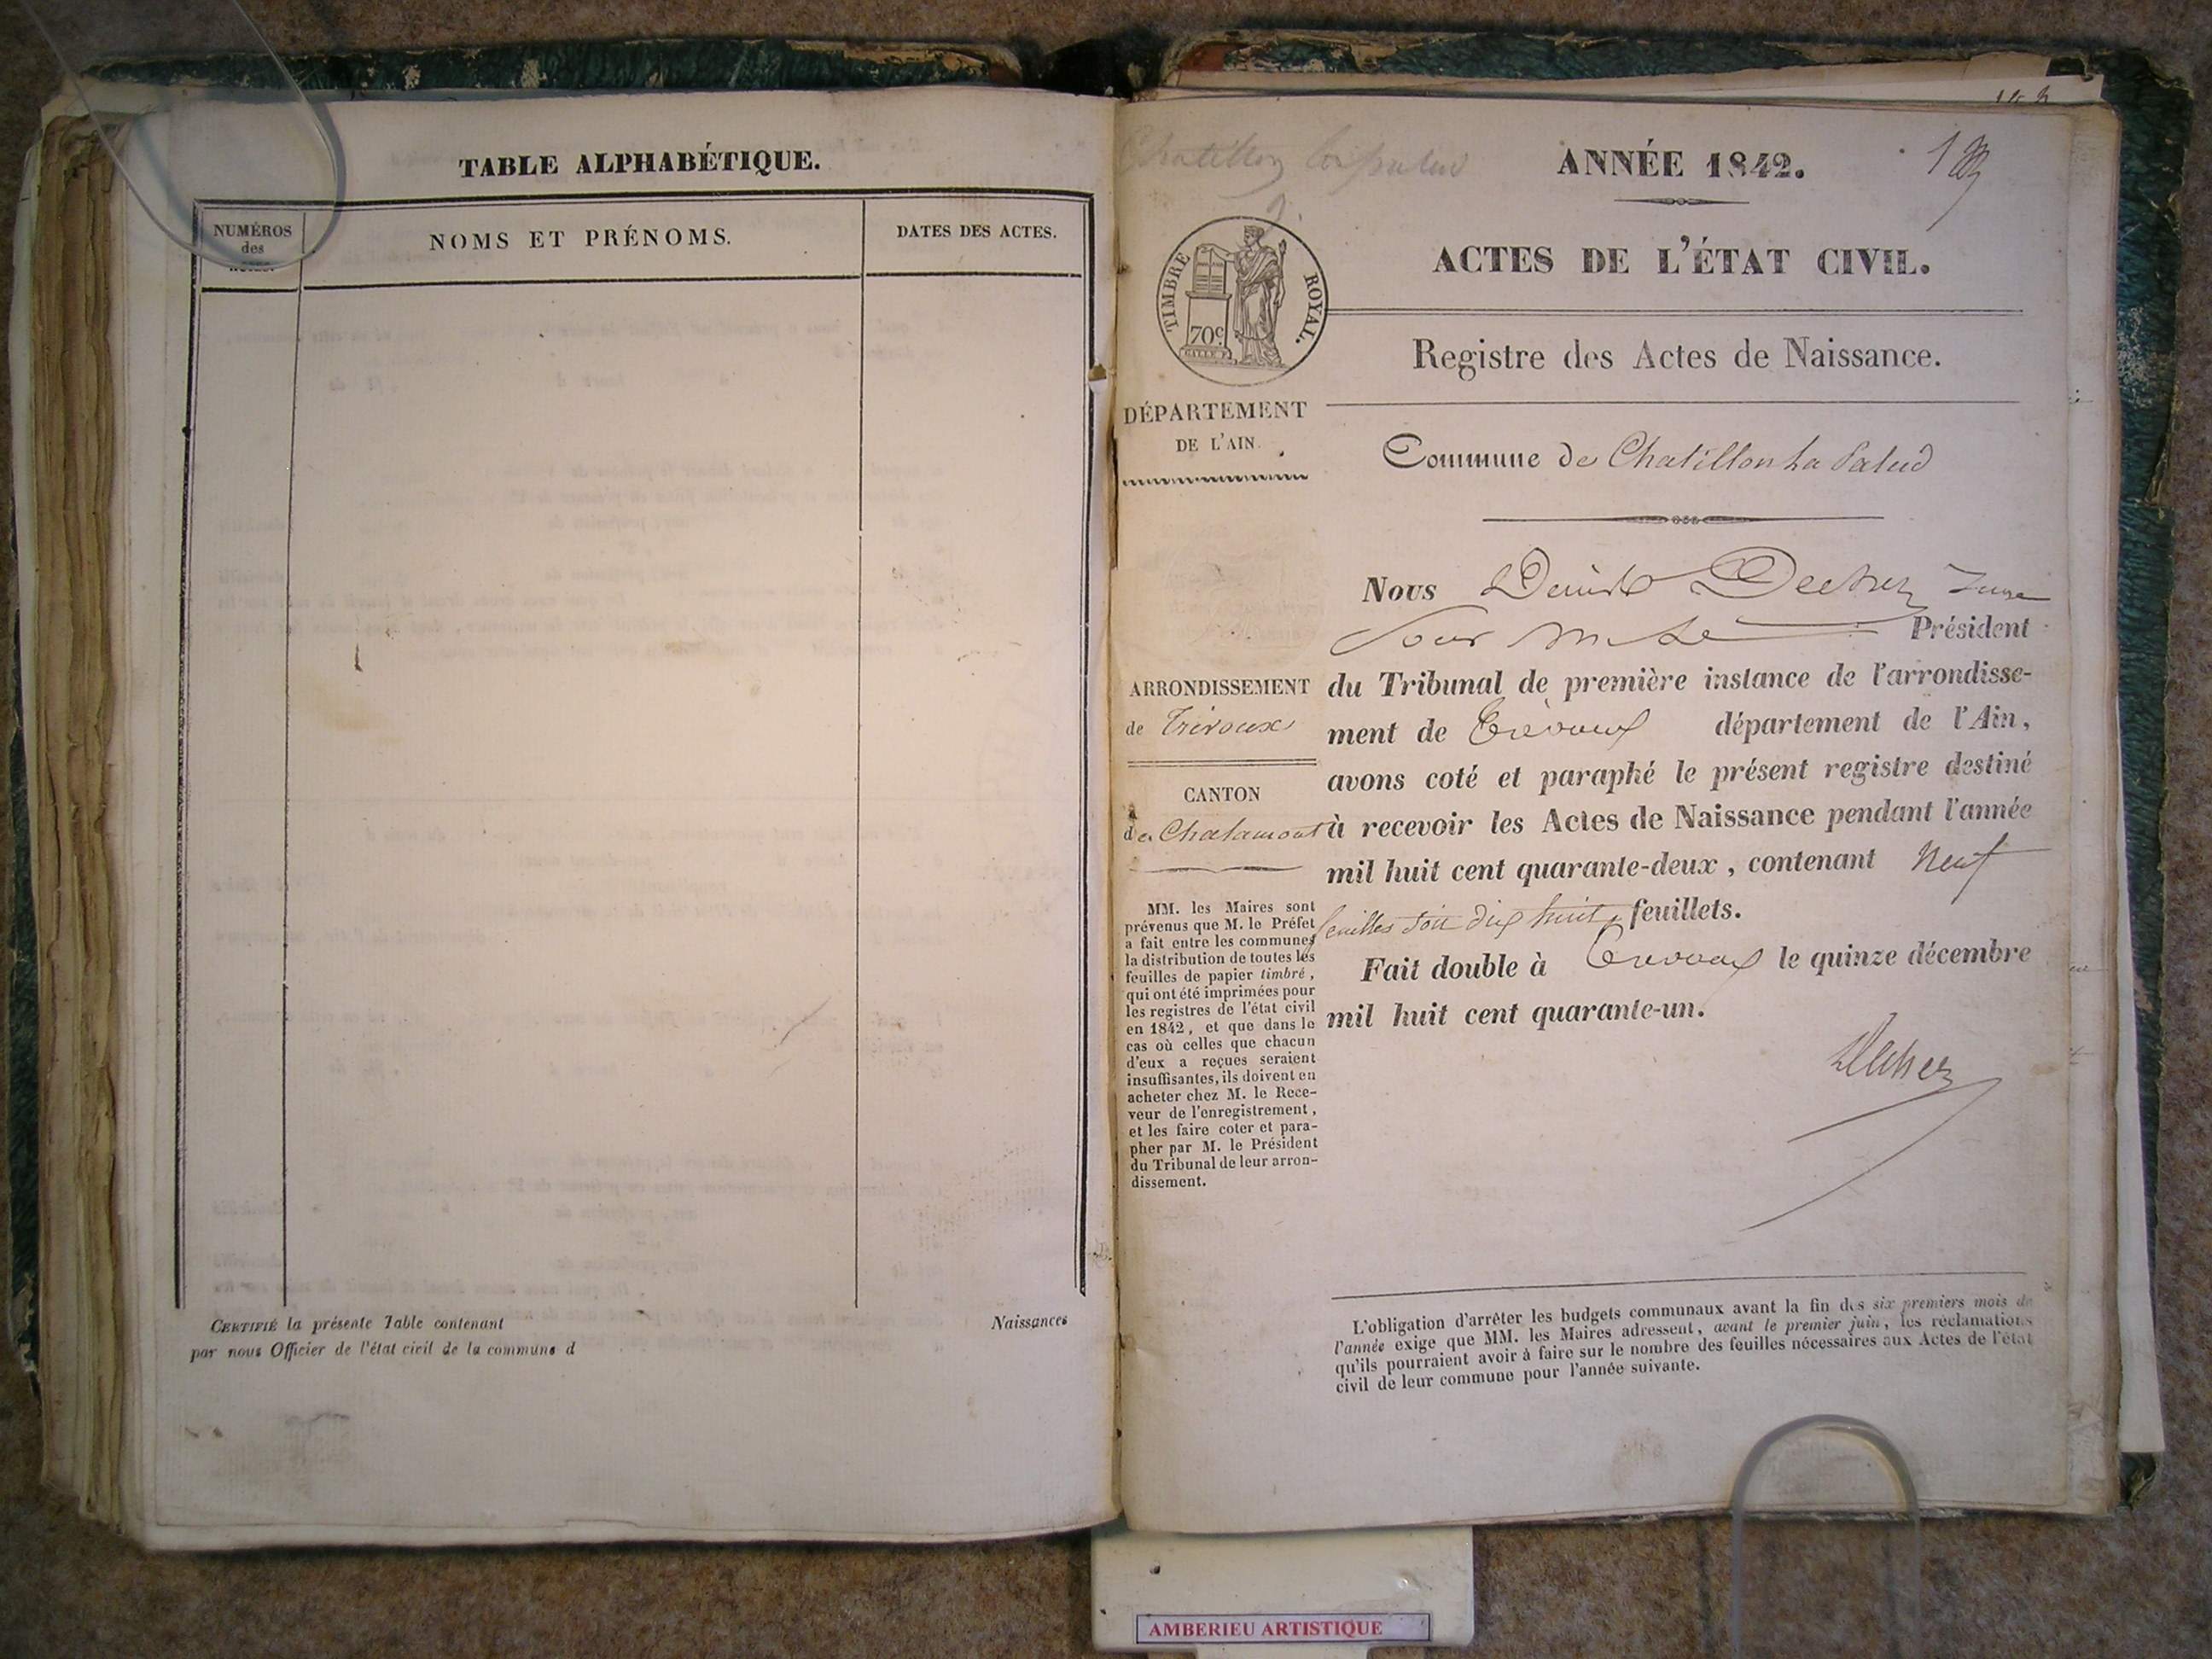 TABLE ALPHABÉTIQUE.
NUMÉROS
des
NOMS ET PRÉNOMS.
DATES DES ACTES.
CERTIFIÉ la présente Table contenant
Naissances
par nous Officier de l'état civil de la commune d
Chatillon la palud
ANNÉE 1842.
ACTES DE L'ÉTAT CIVIL.
TIMBRE ROYAL.
70c
Registre des Actes de Naissance.
DÉPARTEMENT
DE L'AIN.
Commune de Chatillon La Palud
Nous
Président
ARRONDISSEMENT
de Trévoux
CANTON
de Chalamont
MM. les Maires sont
prévenus que M. le Préfet
a fait entre les communes
la distribution de toutes les
feuilles de papier timbré,
qui ont été imprimées pour
les registres de l'état civil
en 1842, et que dans le
cas où celles que chacun
d'eux a reçues seraient
insuffisantes, ils doivent en
acheter chez M. le Rece-
veur de l'enregistrement,
et les faire coter et para-
pher par M. le Président
du Tribunal de leur arron-
dissement.
du Tribunal de première instance de l'arrondisse-
ment de Trévoux département de l'Ain,
avons coté et paraphé le présent registre destiné
à recevoir les Actes de Naissance pendant l'année
mil huit cent quarante-deux, contenant Neuf
feuilles soit dix huit feuillets.
Fait double à Trévoux le quinze décembre
mil huit cent quarante-un.
L'obligation d'arrêter les budgets communaux avant la fin des six premiers mois de
l'année exige que MM. les Maires adressent, avant le premier juin, les réclamations
qu'ils pourraient avoir à faire sur le nombre des feuilles nécessaires aux Actes de l'état
civil de leur commune pour l'année suivante.
AMBERIEU ARTISTIQUE